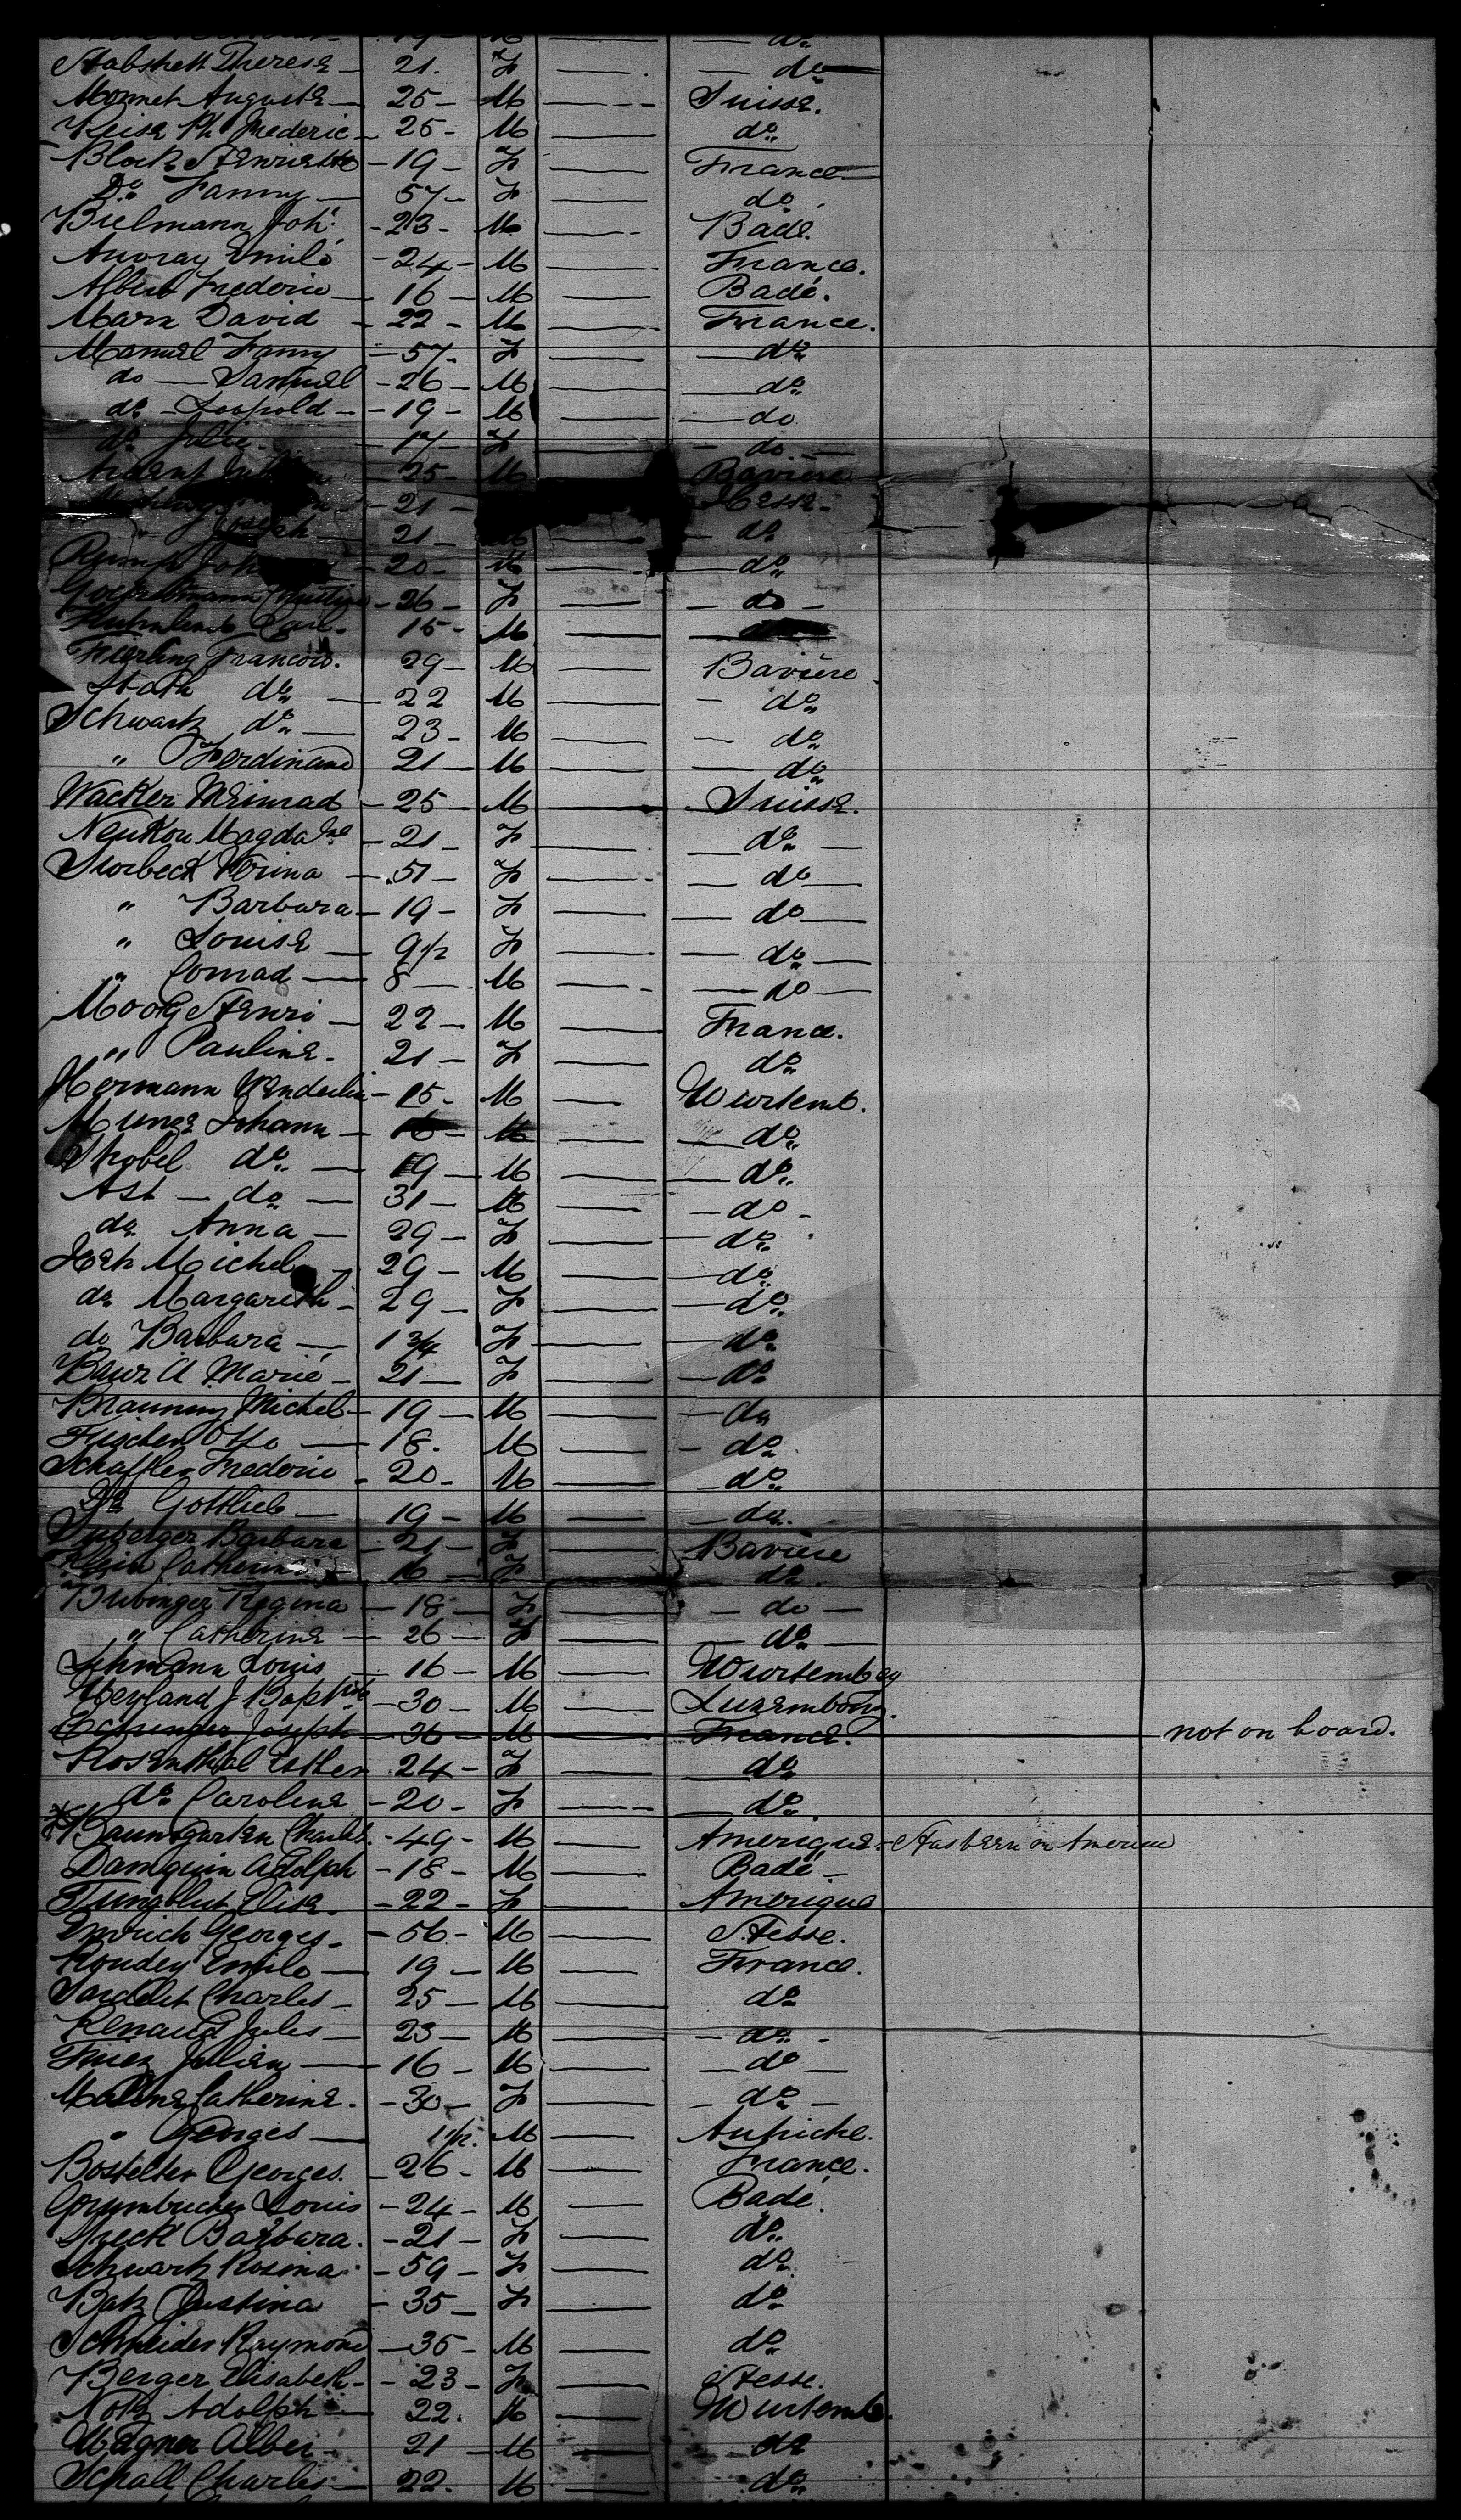 Stabshett Theresa — 21. F — do
Monnet Auguste — 25 — M — Suisse.
Keise Ph Frederic — 25 — M — do
Block Henriette — 19 — F — France
Do Fanny — 57 — F — do
Bielmann Joh. — 23 — M — Bade.
Auvray Emile — 24 — M — France.
Albert Frederic — 16 — M — Bade.
Marx David — 22 — M — France.
Manuel Fanny — 57 — F — do
do — Samuel — 26 — M — do
do — Leopold — 19 — M — do
do Julie — 17 — F — do
25 — M — Baviere
21 — Hesse
" Joseph — 21 — M — do
20 — M — do
26 — F — do
Carl — 15 — M
Fierling Francois. 29 — M — Baviere
Stath do — 22 M — do
Schwartz do — 23 — M — do
" Ferdinand 21 — M — do
Wacker Meinrad — 25 — M — Suisse.
Neukon Magdalne — 21 — F — do
Storbeck Verina — 51 — F — do
" Barbara — 19 — F — do
" Louise — 9 1/2 F — do
" Conrad — 8 — M — do
Moog Henri — 22 — M — France.
" Pauline — 21 — F — do
Hermann Wendelin — 15 — M — Wurtemb.
Johann — 16 — M — do
Strobel do — 19 — M — do
Ast — do — 31 — M — do
do Anna — 29 — F — do
Michel — 29 — M — do
do Margareth — 29 — F — do
do Barbara — 1 3/4 F — do
Baur A Marie — 21 — F — do
Braunny Michel — 19 — M — do
Fischer Otto — 18. M — do
Schaffler Frederic — 20 — M — do
Do Gottlieb — 19 — M — do
Barbara — 21 — F — Baviere
Klein Catherine — 16 — F — do
Bubinger Regina — 18 — F — do
" Catherine — 26 — F — do
Lehmann Louis — 16 — M — Wurtemberg
Weyland J Baptiste — 30 — M — Luxembourg.
Joseph — 36 — M — France. — not on board.
Rosenthal Esther 24 — F — do
do Caroline — 20 — F — do
Baumgarten Charles — 49 — M Amerique — Has been in America
Damquin Adolph — 18 — M — Bade
Jungblut Elise — 22 — F — Amerique
Emrich Georges — 56 — M — Hesse.
Roudey Emile — 19 — M — France.
Sardelet Charles — 25 — M — do
Renaud Jules — 23 — M — do
Julien — 16 — M — do
Catherine — 30 — F — do
" Georges — 1 1/2. M — Autriche.
Bostelter Georges. — 26 — M — France.
Grumbucher Louis — 24 — M — Bade.
Speck Barbara. — 21 — F — do
Schwartz Rosina — 59 — F — do
Batz Justina — 35 — F — do
Schneider Raymond — 35 — M — do
Berger Elisabeth — 23 — F — Hesse.
Notz Adolph — 22. M — Wurtemb.
Wagner Alber — 21 — M — do
Schall Charles — 22. M — do